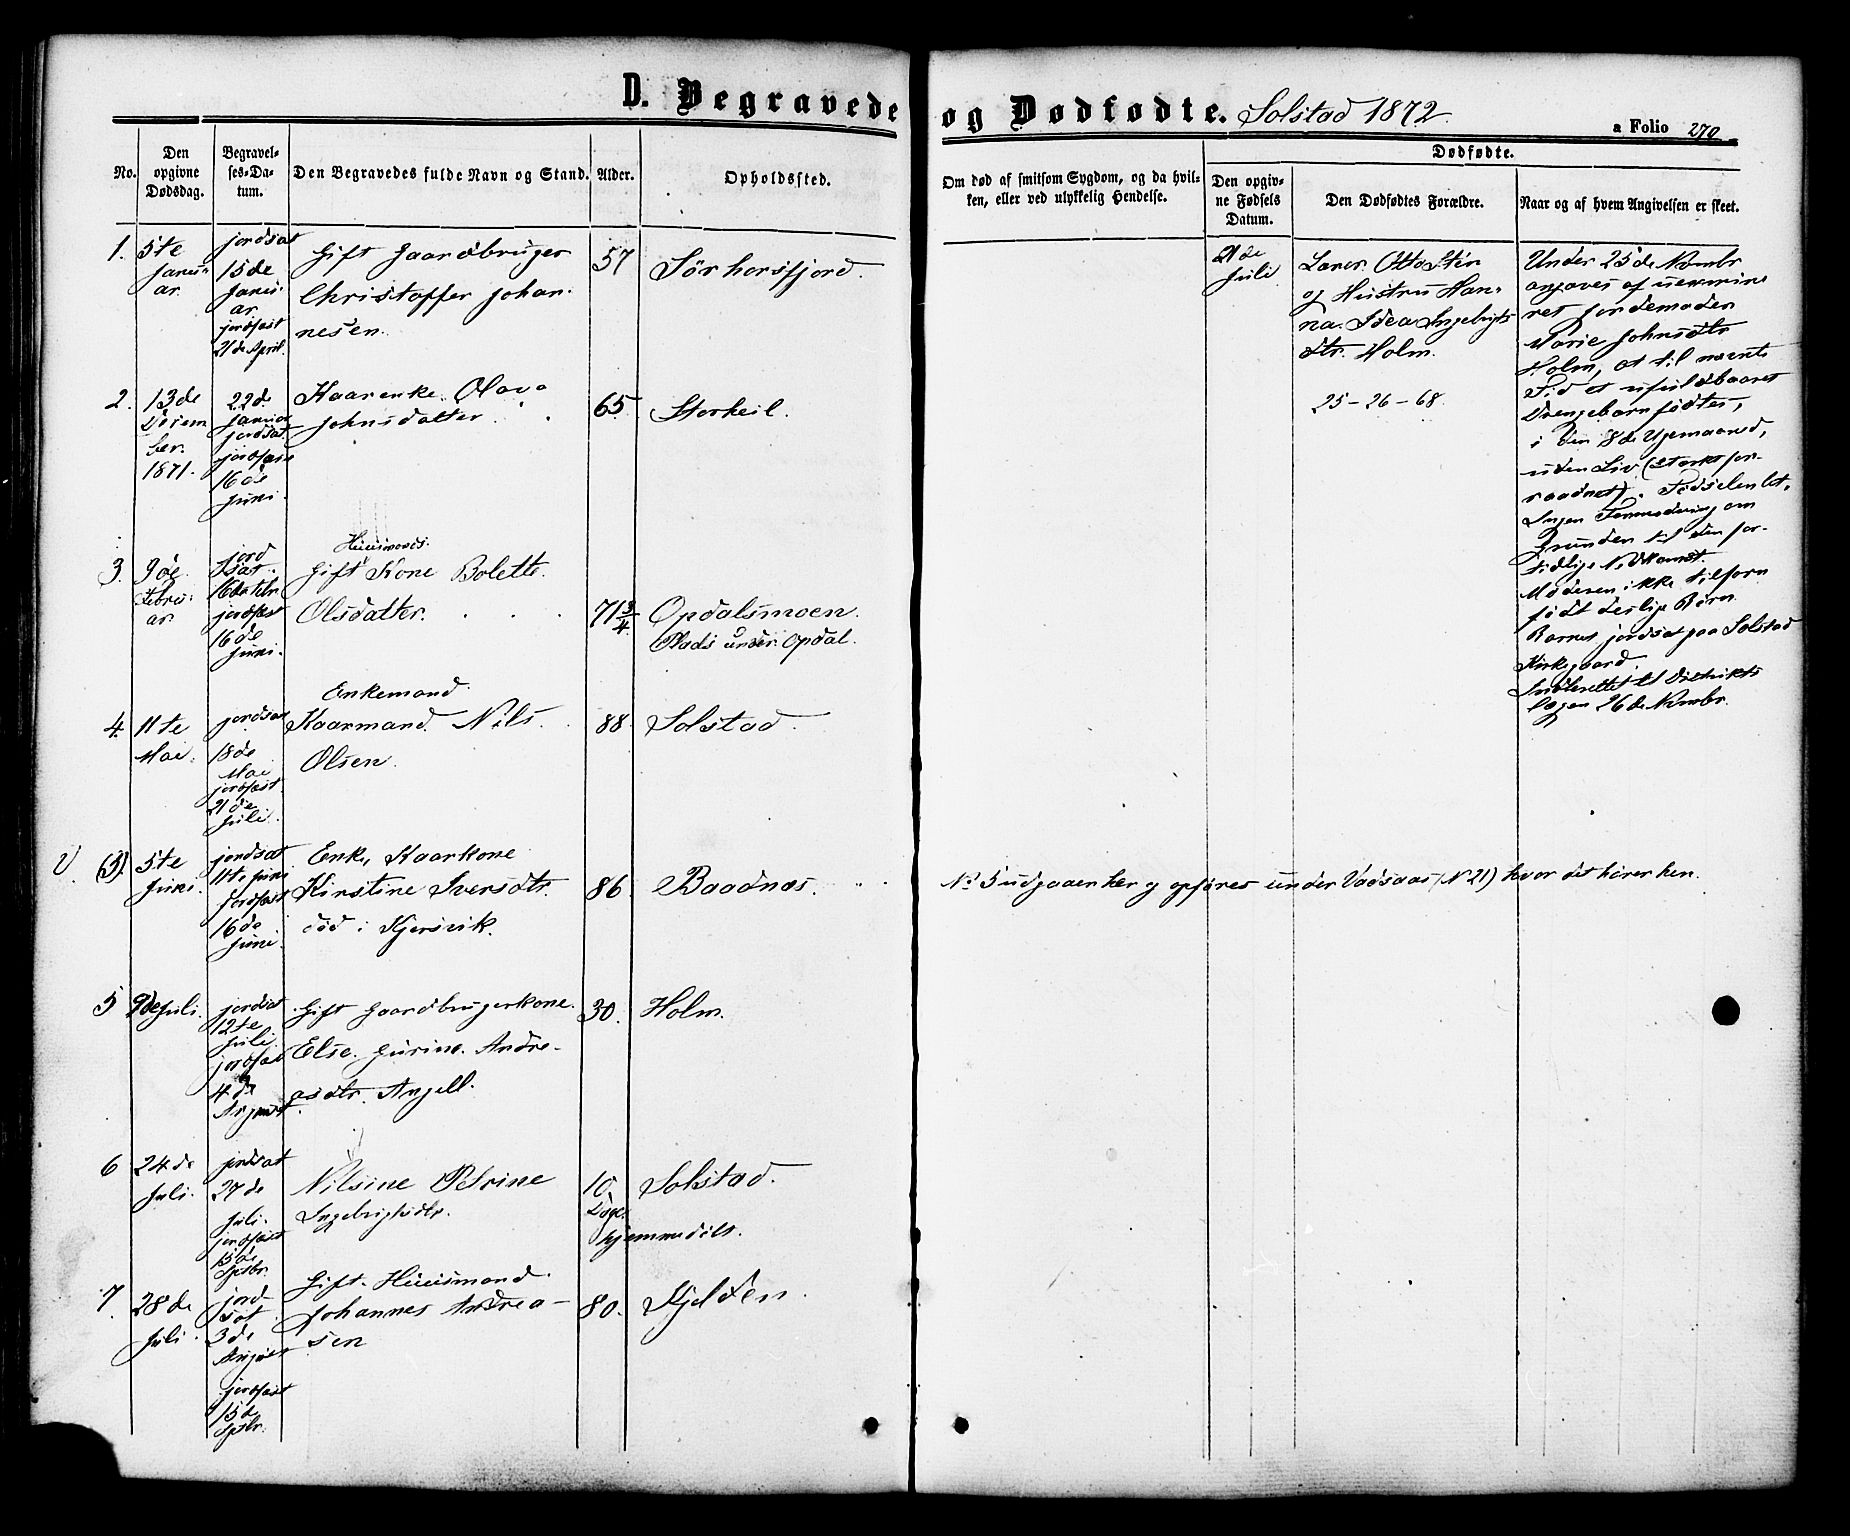 D. Begravede og Dødfødte. Solstad 1872.
a Folio 270
No.
Den opgivne Dødsdag.
Begravelses-Datum.
Den Begravedes fulde Navn og Stand.
Alder.
Opholdssted.
Om død af smitsom Sygdom, og da hvilken, eller ved ulykkelig Hendelse.
Dødfødte.
Den opgivne Fødsels Datum.
Den Dødfødtes Forældre.
Naar og af hvem Angivelsen er skeet.
1. 5te Januar.
jordsat 15de Januar. jordfæst 21de April.
Gift Gaardbruger
Christoffer Johannesen.
57
Sörhorsfjord.
2. 13de Desember. 1871.
22de Januar jordsat. jordfæst 16de Juni.
Kaarenke Olava
Johnsdatter.
65.
Storheil.
3. 9de Februar.
jordsat. 16de Febr jordfæst 16de Juni.
Huusmands.
Gift Kone Bolette
Olsdatter.
71 3/4
Opdalsmoen.
Plads under Opdal.
4. 11te Mai.
jordsat 18de Mai jordfæst 21de Juli.
Enkemand.
Kaarmand. Nils
Olsen.
88
Solstad.
(5). 5te Juni.
jordsat 11te Juni jordfæst 16de Juni.
Enke, Kaarkone
Kirstine Iversdtr.
död i Kjersvik.
86.
Baadnes.
No 5 udgaaer her og opføres under Vadsaas (N 21) hvor det hører hen.
5 9de Juli.
jordsat 12te Juli. jordfæst 4de August.
Gift Gaardbrugerkone.
Else Gurine Andreasdtr. Angell.
30.
Holm.
6 24de Juli.
jordsat 27de Juli. jordfæst 15de Sptbr.
Nilsine Petrine
Ingebrigtsdtr.
10. Dage.
hjemmedöbt.
Solstad.
7. 28de Juli.
jordsat 3de August jordfæst 15de Sptbr.
Gift. Huusmand.
Johannes Andreasen
80.
Kjelden.
21de Juli
Otto
og Hustru Hanna Idea Ingebrigtsdtr. Holm.
25-26-68.
Under 25de Novmbr
angaves af uexamineret Jordemoder
Marie Johnsdtr
Holm, at til nævnte
Tid et ufuldbaaret
Drengebarn fødtes,
i den 8de Ugemaaned,
uden Liv (stærkt forraadnet). Fødselen let.
Ingen Formodning om
Grunden til den fortidlige Nedkomst.
Moderen ikke tilforn
født deslige Børn.
Barnet jordsat paa Solstad
Kirkegaard.
Indberettet til Distriktslægen 26de Novmbr.